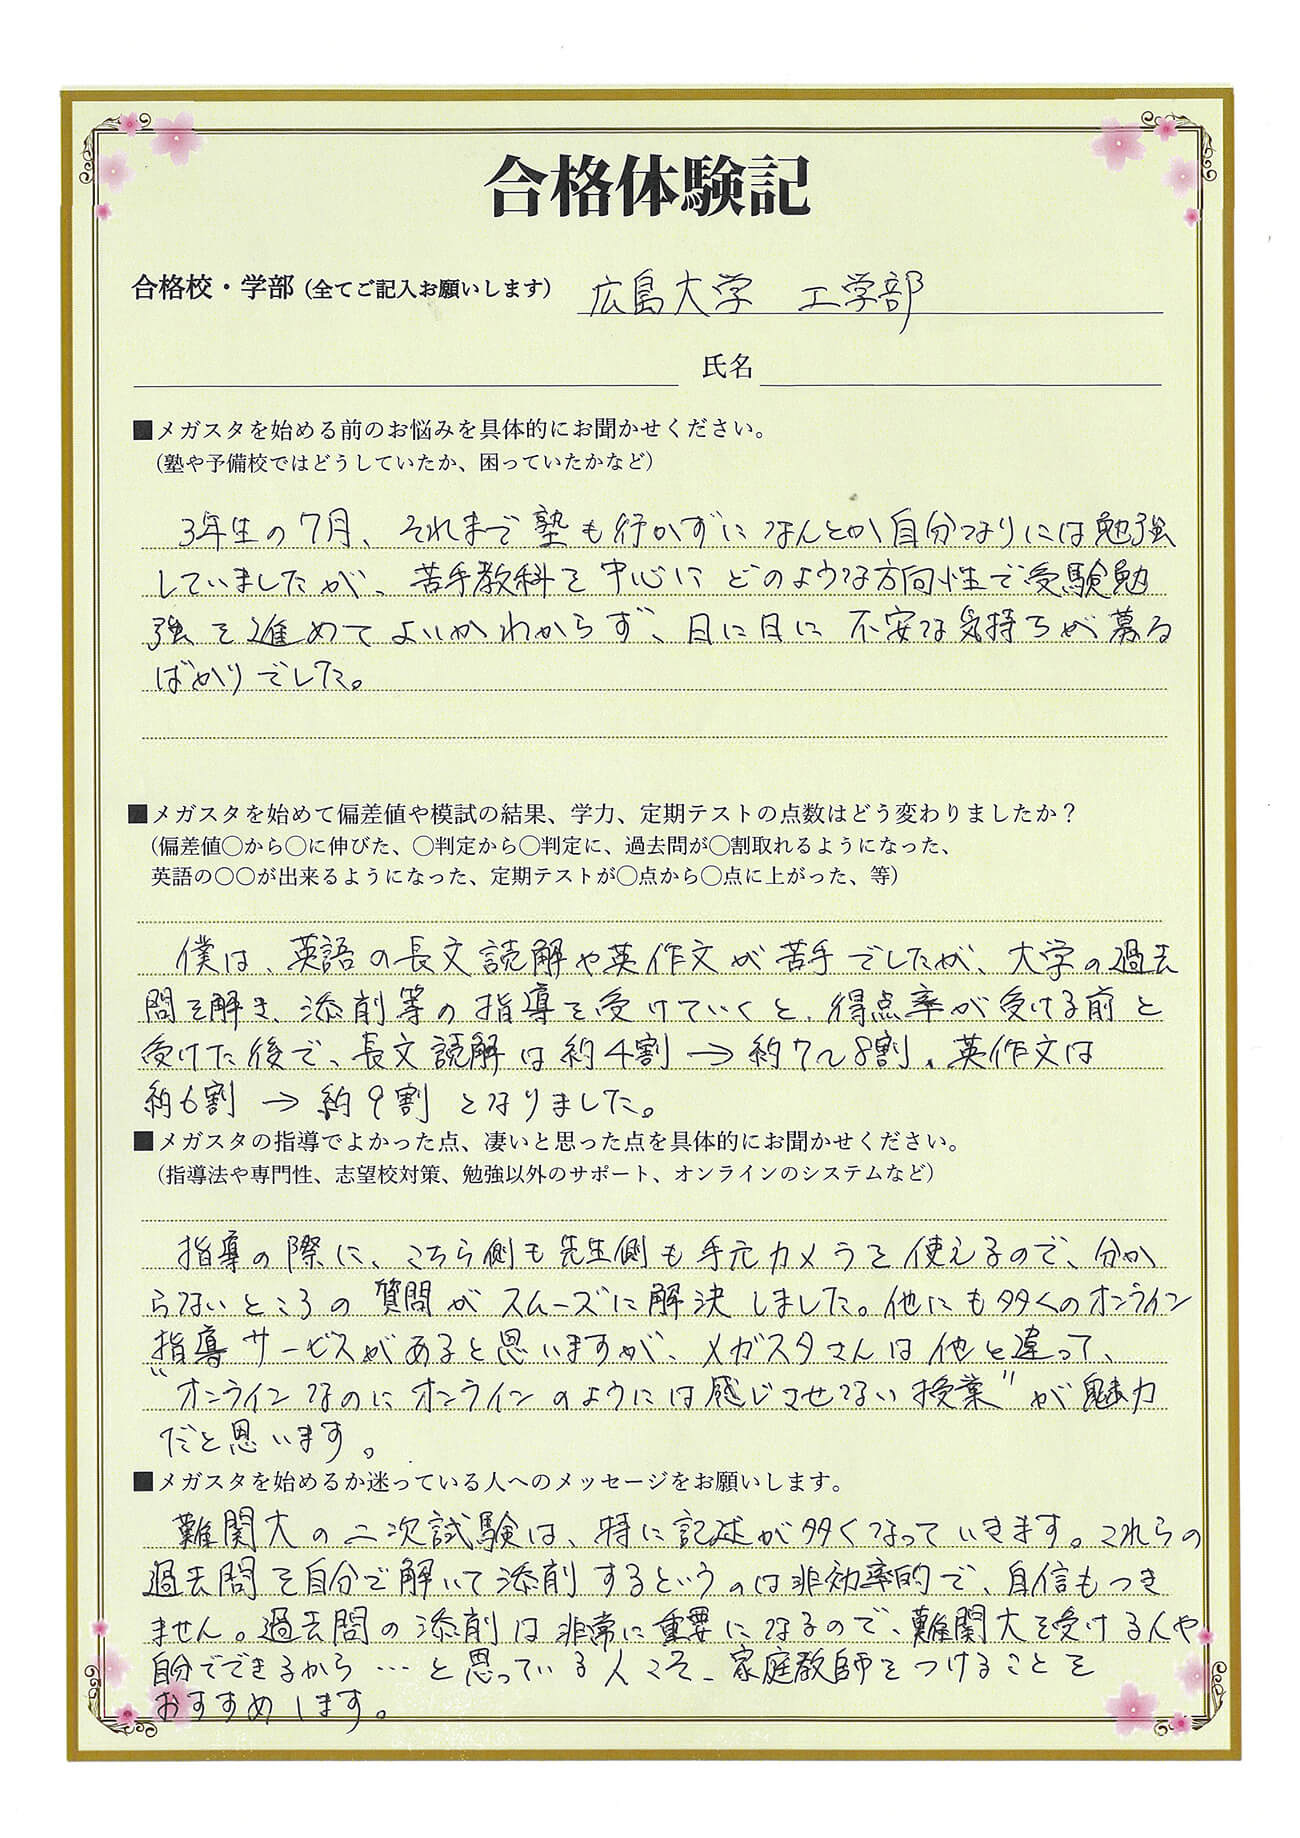 合格体験記
合格校・学部(全てご記入お願いします) 広島大学 工学部
氏名
■メガスタを始める前のお悩みを具体的にお聞かせください。
(塾や予備校ではどうしていたか、困っていたかなど)
3年生の7月、それまで塾も行かずになんとか自分なりには勉強
していましたが、苦手教科を中心にどのような方向性で受験勉
強を進めてよいかわからず、日に日に不安な気持ちが募る
ばかりでした。
■メガスタを始めて偏差値や模試の結果、学力、定期テストの点数はどう変わりましたか？
(偏差値〇から〇に伸びた、〇判定から〇判定に、過去問が〇割取れるようになった、
英語の〇〇が出来るようになった、定期テストが〇点から〇点に上がった、等)
僕は、英語の長文読解や英作文が苦手でしたが、大学の過去
問を解き、添削等の指導を受けていくと、得点率が受ける前と
受けた後で、長文読解は約4割→約7〜8割、英作文は
約6割→約9割となりました。
■メガスタの指導でよかった点、凄いと思った点を具体的にお聞かせください。
(指導法や専門性、志望校対策、勉強以外のサポート、オンラインのシステムなど)
指導の際に、こちら側も先生側も手元カメラを使えるので、分か
らないところの質問がスムーズに解決しました。他にも多くのオンライン
指導サービスがあると思いますが、メガスタさんは他と違って、
"オンラインなのにオンラインのようには感じさせない授業"が魅力
だと思います。
■メガスタを始めるか迷っている人へのメッセージをお願いします。
難関大の二次試験は、特に記述が多くなっていきます。これらの
過去問を自分で解いて添削するというのは非効率的で、自信もつき
ません。過去問の添削は非常に重要になるので、難関大を受ける人や
自分でできるから…と思っている人こそ、家庭教師をつけることを
おすすめします。